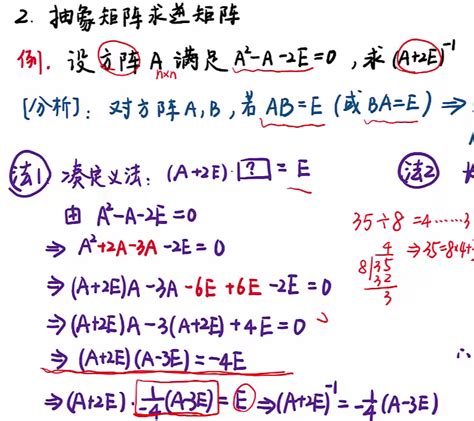 2. 抽象矩阵求逆矩阵
例. 设方阵 A 满足 A²-A-2E=0, 求 (A+2E)⁻¹
n×n
[分析]: 对方阵A,B, 若 AB=E (或 BA=E) ⇒
法1 凑定义法: (A+2E)·[?] = E
法2
由 A²-A-2E=0
35÷8=4……3
⇒ A²+2A-3A-2E=0
4
⇒35=8×4+
8|35
32
3
⇒(A+2E)A-3A-6E+6E-2E=0
⇒(A+2E)A-3(A+2E)+4E=0
⇒ (A+2E)(A-3E)=-4E
∴
⇒(A+2E)·1/-4(A-3E)=E⇒(A+2E)⁻¹=-1/4(A-3E)